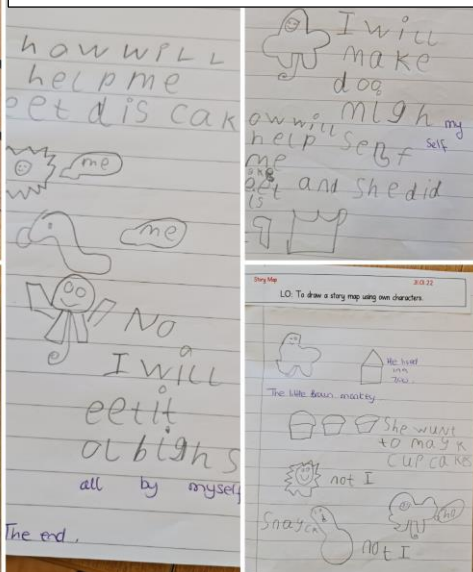 how wiLL
help me
eet dis cak
me
me
No
I wiLL
eetit
all by myself
The end.
I will
make
dog
migh my
owwill
help self self
me
eet and she did
is
Story Map
21.01.22
LO: To draw a story map using own characters.
He lived
in a
The little Brown monkey
She wunt
to mayk
cupcakes
not I
Snayck
not I